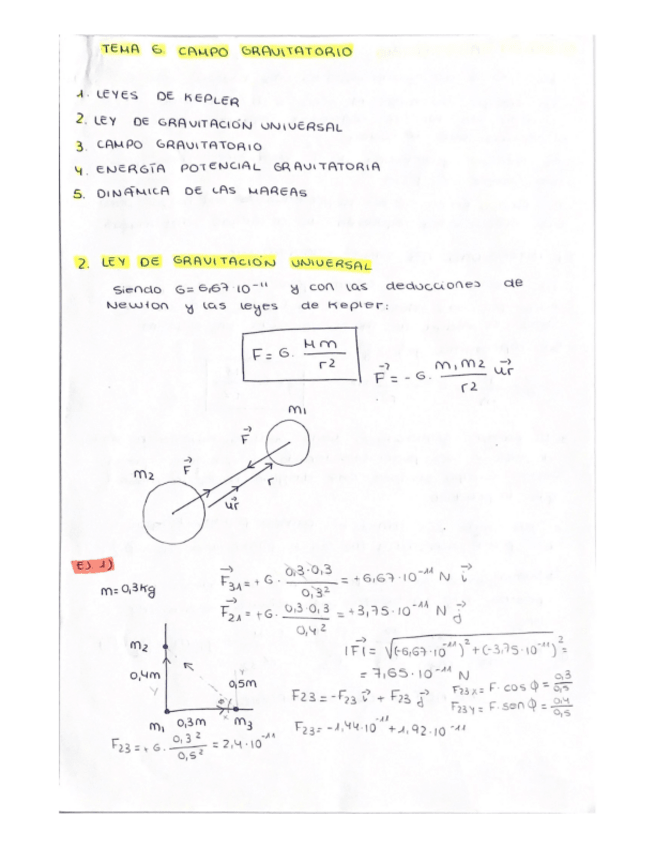 TEMA 6. CAMPO GRAVITATORIO
1. LEYES DE KEPLER
2. LEY DE GRAVITACIÓN UNIVERSAL
3. CAMPO GRAVITATORIO
4. ENERGÍA POTENCIAL GRAVITATORIA
5. DINÁMICA DE LAS MAREAS
2. LEY DE GRAVITACIÓN UNIVERSAL
Siendo G=6,67·10⁻¹¹ y con las deducciones de
Newton y las leyes de Kepler:
F = G· Mm/r2
F⃗ = -G· m1m2/r2 u⃗r
m1
F⃗
m2
F⃗
r
u⃗r
EJ 1)
m=0,3kg
F⃗31 = +G· 0,3·0,3/0,3² = +6,67·10⁻¹¹ N i⃗
F⃗21 = +G· 0,3·0,3/0,4² = +3,75·10⁻¹¹ N j⃗
|F⃗| = √((-6,67·10⁻¹¹)² + (-3,75·10⁻¹¹)²) =
= 7,65·10⁻¹¹ N
m2
0,4m
0,5m
m1 0,3m m3
F23 = -F23 i⃗ + F23 j⃗
F23x = F·cos φ = 0,3/0,5
F23y = F·sen φ = 0,4/0,5
F23 = +G· 0,3²/0,5² = 2,4·10⁻¹¹
F23 = -1,44·10⁻¹¹ + 1,92·10⁻¹¹